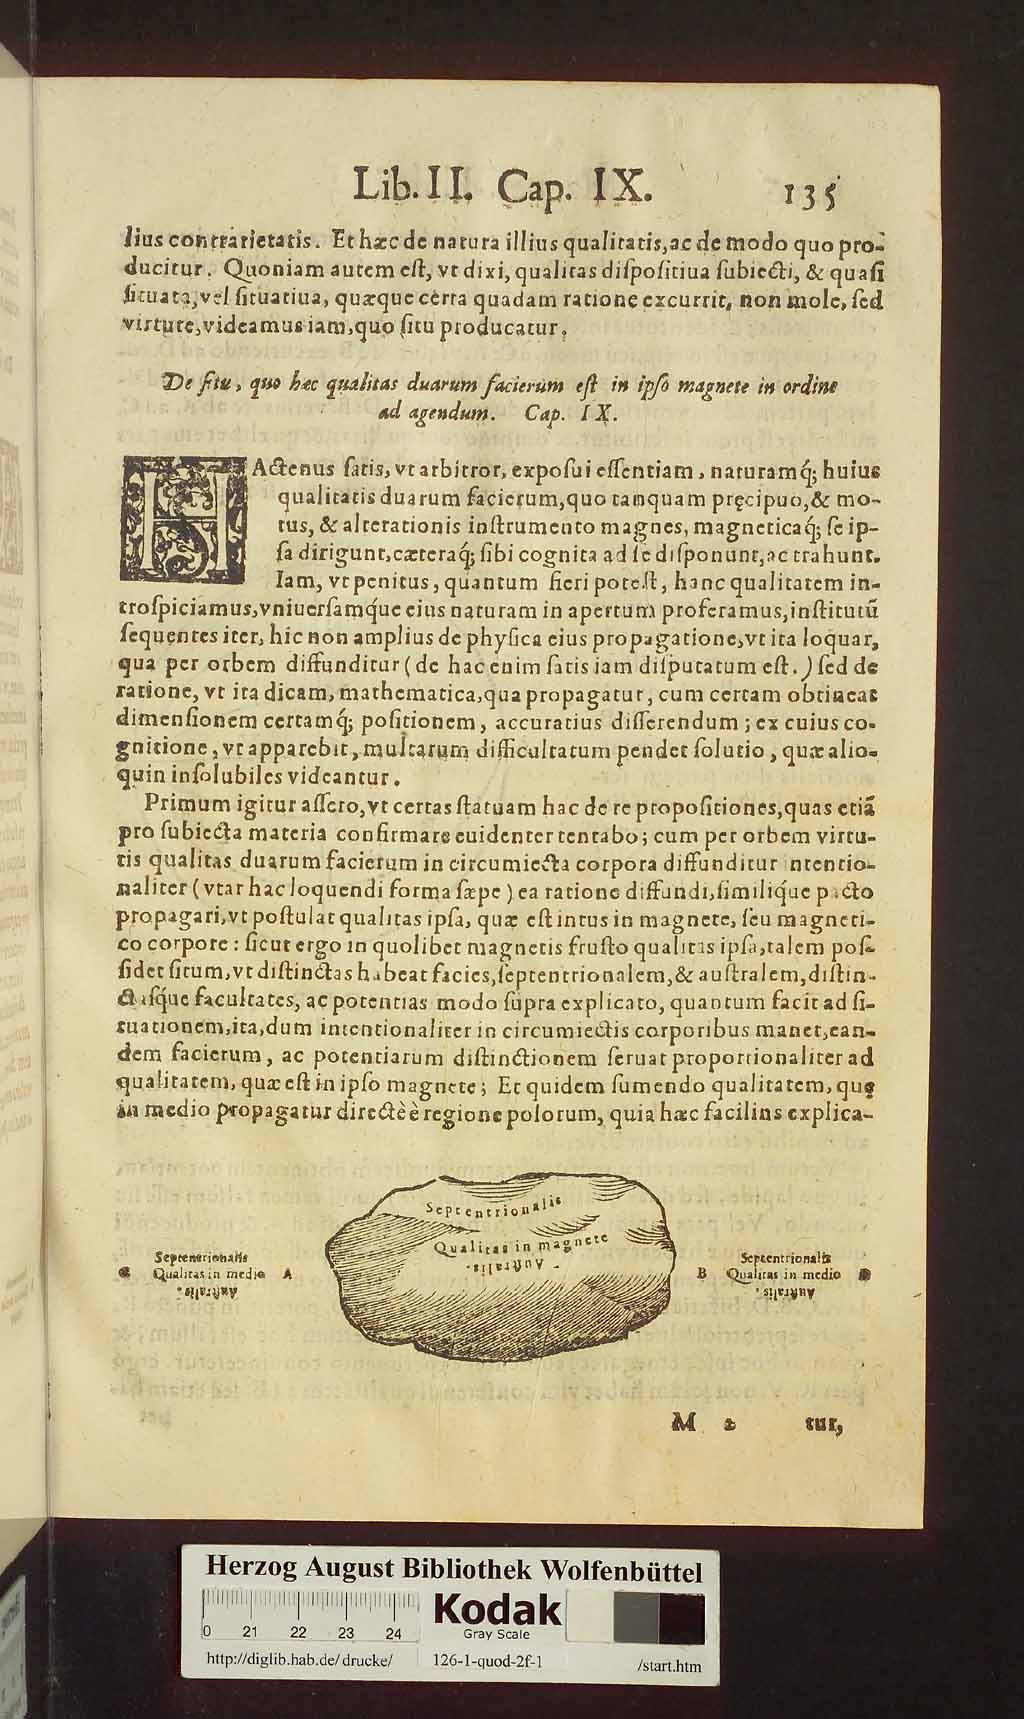 Lib. II. Cap. IX. 135
lius contrarietatis. Et hæc de natura illius qualitatis, ac de modo quo pro-
ducitur. Quoniam autem eſt, vt dixi, qualitas diſpoſitiua ſubiecti, & quaſi
ſituata, vel ſituatiua, quæque certa quadam ratione excurrit, non mole, ſed
virtute, videamus iam, quo ſitu producatur.
De ſitu, quo hæc qualitas duarum facierum eſt in ipſo magnete in ordine
ad agendum. Cap. IX.
HActenus ſatis, vt arbitror, expoſui eſſentiam, naturamq́; huius
qualitatis duarum facierum, quo tanquam pręcipuo, & mo-
tus, & alterationis inſtrumento magnes, magneticaq́; ſe ip-
ſa dirigunt, cæteraq́; ſibi cognita ad ſe diſponunt, ac trahunt.
Iam, vt penitus, quantum fieri poteſt, hanc qualitatem in-
troſpiciamus, vniuerſamq́ue eius naturam in apertum proferamus, inſtitutũ
ſequentes iter, hic non amplius de phyſica eius propagatione, vt ita loquar,
qua per orbem diffunditur (de hac enim ſatis iam diſputatum eſt.) ſed de
ratione, vt ita dicam, mathematica, qua propagatur, cum certam obtineat
dimenſionem certamq́; poſitionem, accuratius diſſerendum; ex cuius co-
gnitione, vt apparebit, multarum difficultatum pendet ſolutio, quæ alio-
quin inſolubiles videantur.
Primum igitur aſſero, vt certas ſtatuam hac de re propoſitiones, quas etiã
pro ſubiecta materia confirmare euidenter tentabo; cum per orbem virtu-
tis qualitas duarum facierum in circumiecta corpora diffunditur intentio-
naliter (vtar hac loquendi forma ſæpe) ea ratione diffundi, ſimiliq́ue pacto
propagari, vt poſtulat qualitas ipſa, quæ eſt intus in magnete, ſeu magneti-
co corpore: ſicut ergo in quolibet magnetis fruſto qualitas ipſa, talem poſ-
ſidet ſitum, vt diſtinctas habeat facies, ſeptentrionalem, & auſtralem, diſtin-
ctaſq́ue facultates, ac potentias modo ſupra explicato, quantum facit ad ſi-
tuationem, ita, dum intentionaliter in circumiectis corporibus manet, ean-
dem facierum, ac potentiarum diſtinctionem ſeruat proportionaliter ad
qualitatem, quæ eſt in ipſo magnete; Et quidem ſumendo qualitatem, quę
in medio propagatur directè è regione polorum, quia hæc facilius explica-
Septentrionalis
Qualitas in magnete
Auſtralis.
Septentrionalis
Qualitas in medio A
Auſtralis.
Septentrionalis
B Qualitas in medio
Auſtralis.
M 2 tur,
Herzog August Bibliothek Wolfenbüttel
0 21 22 23 24
Kodak
Gray Scale
http://diglib.hab.de/drucke/ 126-1-quod-2f-1 /start.htm